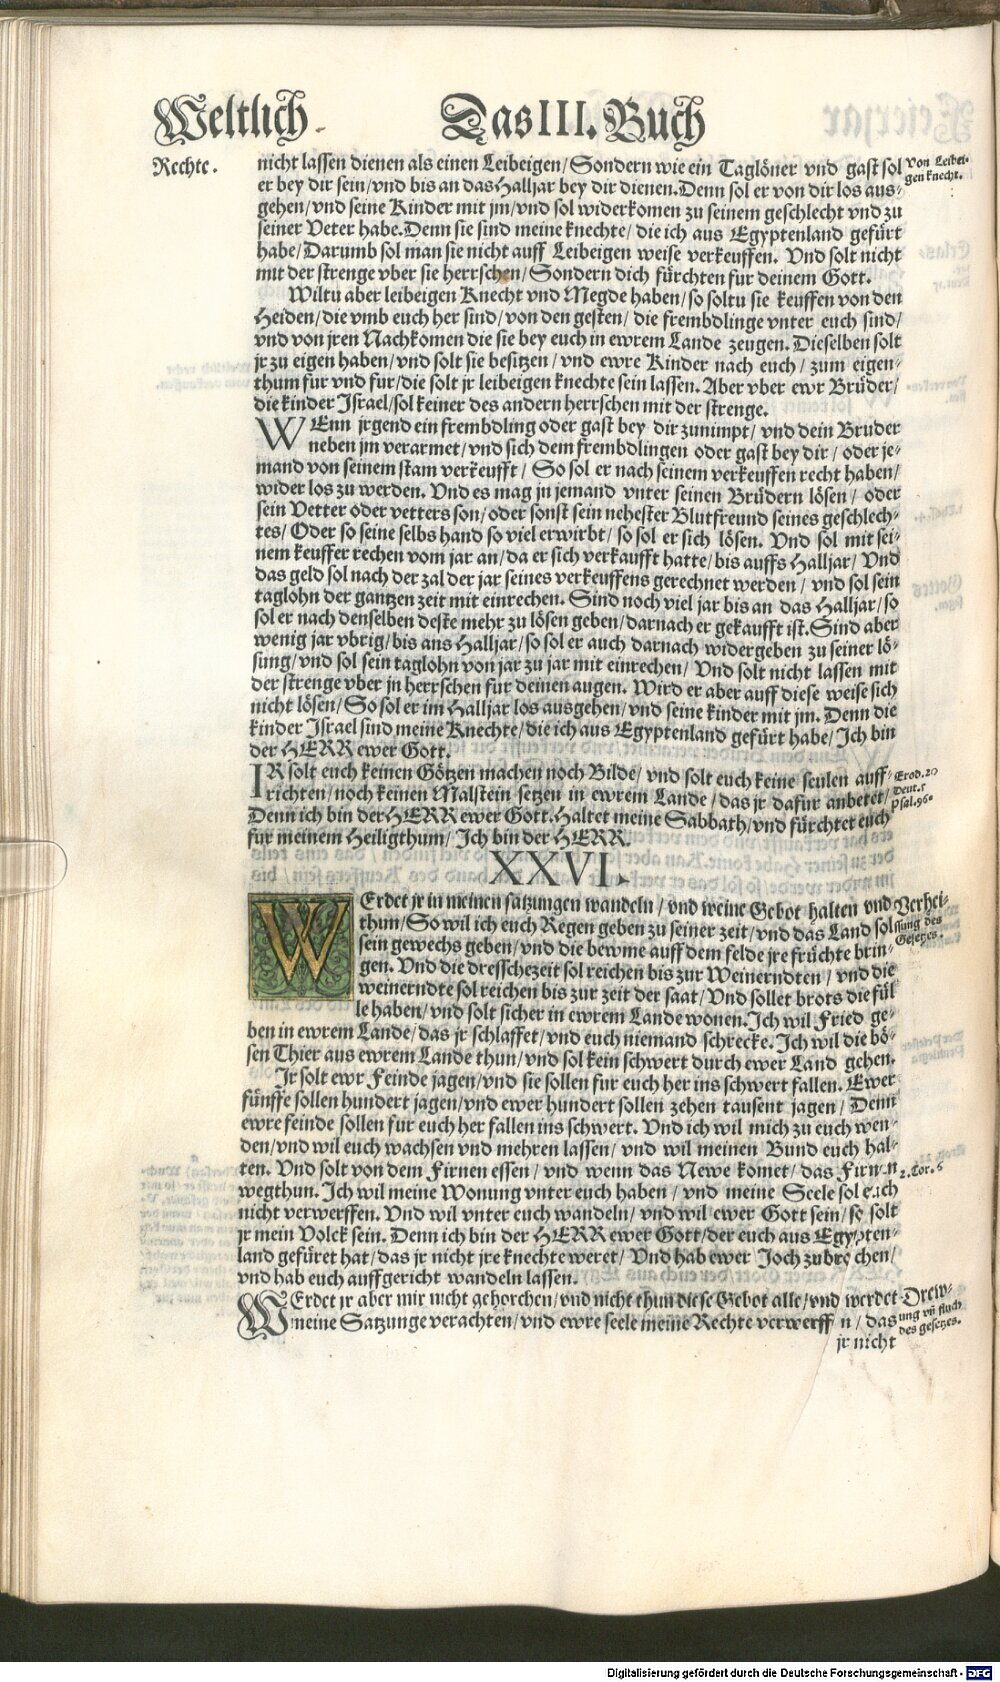 Weltlich Das III. Buch
Rechte.
nicht lassen dienen als einen Leibeigen/ Sondern wie ein Taglöner vnd gast sol
Von Leibei-
gen knecht.
er bey dir sein/ vnd bis an das Halljar bey dir dienen. Denn sol er von dir los aus-
gehen/ vnd seine Kinder mit jm/ vnd sol widerkomen zu seinem geschlecht vnd zu
seiner Veter habe. Denn sie sind meine knechte/ die ich aus Egyptenland gefürt
habe/ Darumb sol man sie nicht auff Leibeigen weise verkeuffen. Vnd solt nicht
mit der strenge vber sie herrschen/ Sondern dich fürchten fur deinem Gott.
Wiltu aber leibeigen Knecht vnd Megde haben/ so soltu sie keuffen von den
Heiden/ die vmb euch her sind/ von den gesten/ die frembdlinge vnter euch sind/
vnd von jren Nachkomen die sie bey euch in ewrem Lande zeugen. Dieselben solt
jr zu eigen haben/ vnd solt sie besitzen/ vnd ewre Kinder nach euch/ zum eigen-
thum fur vnd fur/ die solt jr leibeigen knechte sein lassen. Aber vber ewr Brüder/
die kinder Israel/ sol keiner des andern herrschen mit der strenge.
WEnn jrgend ein frembdling oder gast bey dir zunimpt/ vnd dein Bruder
neben jm verarmet/ vnd sich dem frembdlingen oder gast bey dir/ oder je-
mand von seinem stam verkeufft/ So sol er nach seinem verkeuffen recht haben/
wider los zu werden. Vnd es mag jn jemand vnter seinen Brüdern lösen/ oder
sein Vetter oder vetters son/ oder sonst sein nehester Blutfreund seines geschlech-
tes/ Oder so seine selbs hand so viel erwirbt/ so sol er sich lösen. Vnd sol mit sei-
nem keuffer rechen vom jar an/ da er sich verkaufft hatte/ bis auffs Halljar/ Vnd
das geld sol nach der zal der jar seines verkeuffens gerechnet werden/ vnd sol sein
taglohn der gantzen zeit mit einrechen. Sind noch viel jar bis an das Halljar/ so
sol er nach denselben deste mehr zu lösen geben/ darnach er gekaufft ist. Sind aber
wenig jar vbrig/ bis ans Halljar/ so sol er auch darnach widergeben zu seiner lö-
sung/ vnd sol sein taglohn von jar zu jar mit einrechen/ Vnd solt nicht lassen mit
der strenge vber jn herrschen fur deinen augen. Wird er aber auff diese weise sich
nicht lösen/ So sol er im Halljar los ausgehen/ vnd seine kinder mit jm. Denn die
kinder Israel sind meine Knechte/ die ich aus Egyptenland gefürt habe/ Ich bin
der HERR ewer Gott.
IR solt euch keinen Götzen machen noch Bilde/ vnd solt euch keine seulen auff-
Exod. 20
richten/ noch keinen Malstein setzen in ewrem Lande/ das jr dafur anbetet/
Deut. 5
Psal. 96.
Denn ich bin der HERR ewer Gott. Haltet meine Sabbath/ vnd fürchtet euch
fur meinem Heiligthum/ Ich bin der HERR.
XXVI.
WErdet jr in meinen satzungen wandeln/ vnd meine Gebot halten vnd
Verhei-
thum/ So wil ich euch Regen geben zu seiner zeit/ vnd das Land sol
ssung des
sein gewechs geben/ vnd die bewme auff dem felde jre früchte brin-
Gesetzes.
gen. Vnd die dresschezeit sol reichen bis zur Weinerndten/ vnd die
weinerndte sol reichen bis zur zeit der saat/ Vnd sollet brots die fül
le haben/ vnd solt sicher in ewrem Lande wonen. Ich wil Fried ge-
ben in ewrem Lande/ das jr schlaffet/ vnd euch niemand schrecke. Ich wil die bö-
sen Thier aus ewrem Lande thun/ vnd sol kein schwert durch ewer Land gehen.
Ir solt ewr Feinde jagen/ vnd sie sollen fur euch her ins schwert fallen. Ewer
fünffe sollen hundert jagen/ vnd ewer hundert sollen zehen tausent jagen/ Denn
ewre feinde sollen fur euch her fallen ins schwert. Vnd ich wil mich zu euch wen-
den/ vnd wil euch wachsen vnd mehren lassen/ vnd wil meinen Bund euch hal-
ten. Vnd solt von dem Firnen essen/ vnd wenn das Newe komet/ das Firnen
2. Cor. 6
wegthun. Ich wil meine Wonung vnter euch haben/ vnd meine Seele sol euch
nicht verwerffen. Vnd wil vnter euch wandeln/ vnd wil ewer Gott sein/ so solt
jr mein Volck sein. Denn ich bin der HERR ewer Gott/ der euch aus Egypten-
land gefüret hat/ das jr nicht jre knechte weret/ Vnd hab ewer Joch zubrochen/
vnd hab euch auffgericht wandeln lassen.
WErdet jr aber mir nicht gehorchen/ vnd nicht thun diese Gebot alle/ vnd werdet
Drew-
meine Satzunge verachten/ vnd ewre seele meine Rechte verwerffen/ das
ung vñ fluch
des gesetzes.
jr nicht
Digitalisierung gefördert durch die Deutsche Forschungsgemeinschaft - DFG